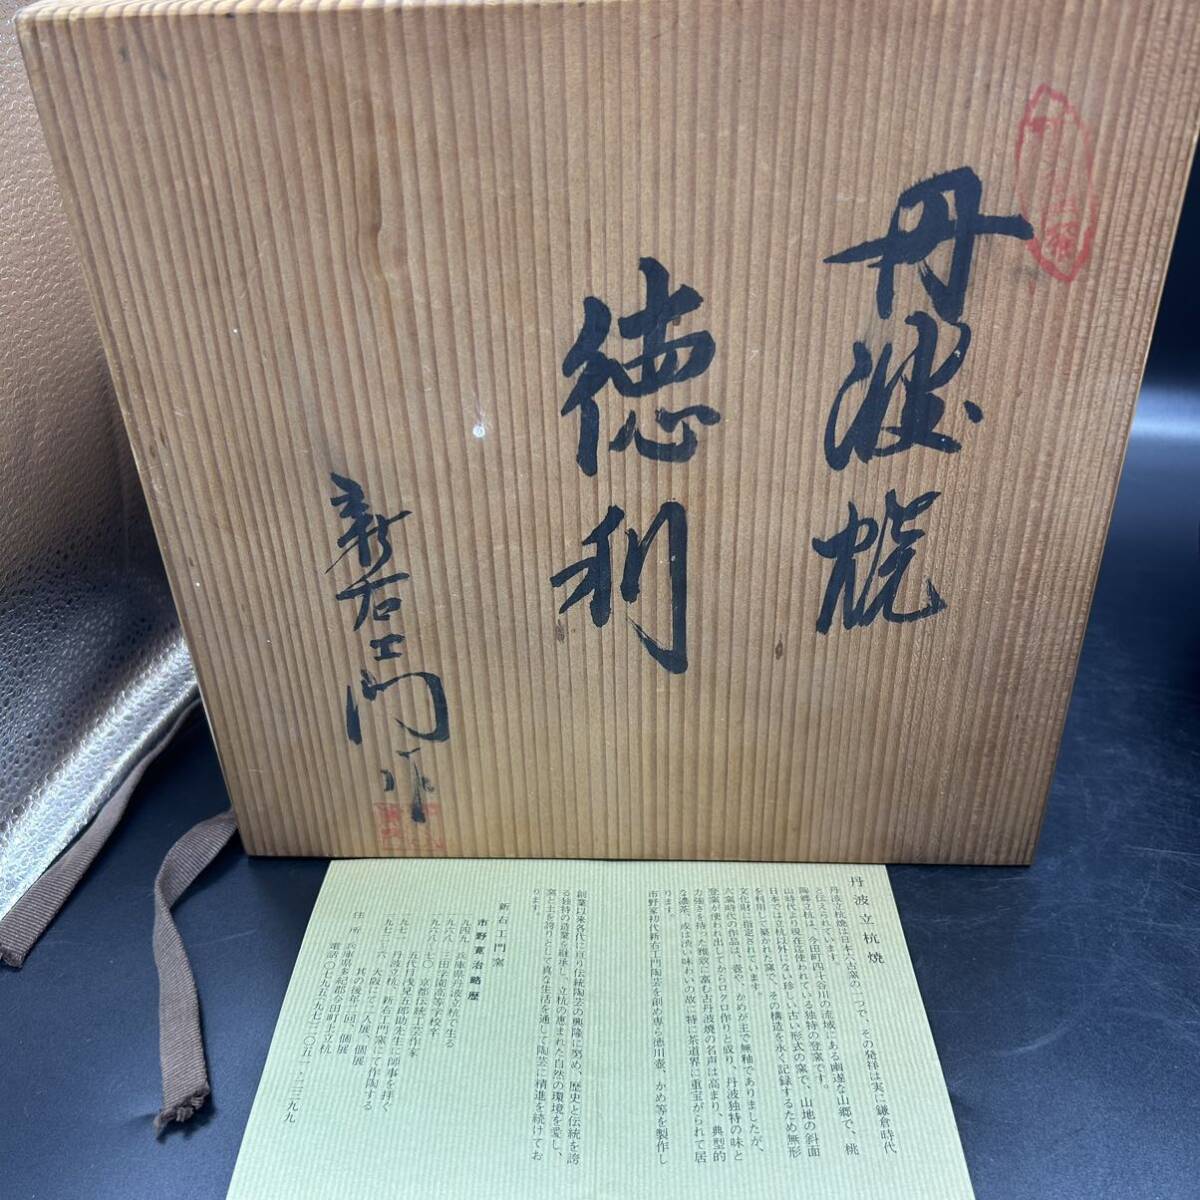 丹波焼
徳利
新右エ門作
丹波立杭焼
丹波立杭焼は日本六古窯の一つで、その発祥は実に鎌倉時代
と伝えられています。
陶郷立杭は、今田町四斗谷川の流域にある幽邃な山郷で、桃
山時代より現在迄使われている独特の登窯です。
日本では立杭以外にない珍しい古い形式の窯で、山地の斜面
を利用して築かれた窯で、その構造を永く記録するため無形
文化財に指定されています。
六窯時代の作品は、壺や、かめが主で無釉でありましたが、
登窯が使われ出してからロクロ作りと成り、丹波独特の味と
力強さを持った雅致に富む古丹波焼の名声は高まり、典型的
な濃茶、或は渋い味わいの故に特に茶道界に重宝がられて居
ります。
市野家初代新右エ門陶芸を創め専ら徳川壺、かめ等を製作し
創業以来各代に亘り伝統陶芸の興隆に努め、歴史と伝統を誇
る独特の造業を継承し、立杭の恵まれた自然の環境を愛し、
窯と土を誇りとして真な生活を通して陶芸に精進を続けてお
ります。
新右エ門窯
市野 治略歴
一九四九 兵庫県丹波立杭で生る
一九六八 三田学園高等学校卒
一九六八〜七〇 京都伝統工芸作家
五代丹浅見五郎助先生に師事を拝ぐ
一九七一 丹波立杭、新右エ門窯にて作陶する
一九七二〜六 大阪にて二人展、個展
其の後年二回、個展
住所 兵庫県多紀郡今田町上立杭
電話〇七九五九七-二〇五 二三九九